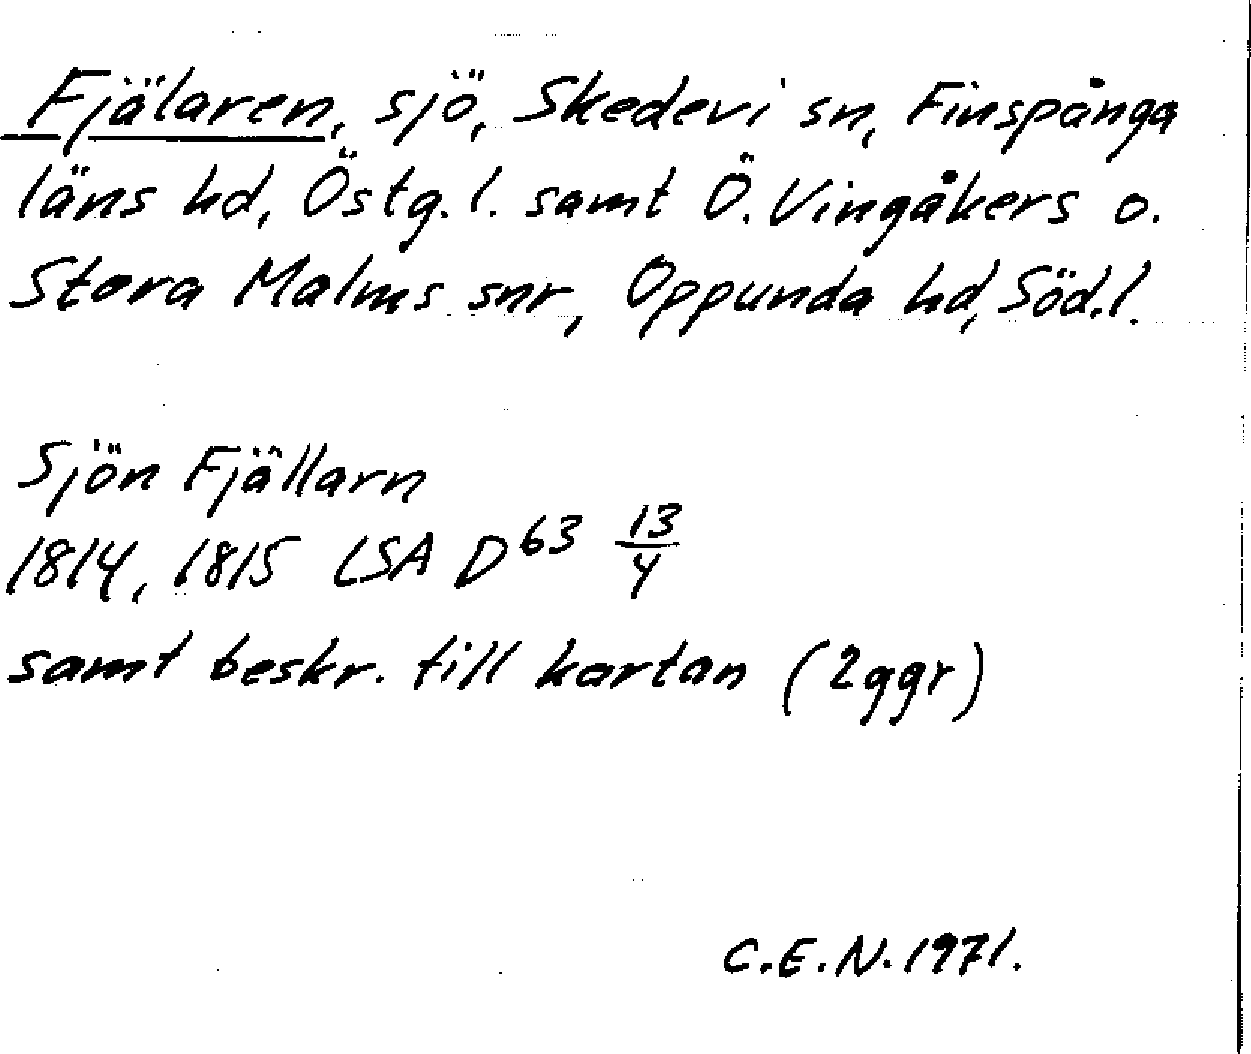 Fjälaren, sjö, Skedevi sn, Finspånga
läns hd, Östg. l. samt Ö. Vingåkers o.
Stora Malms snr, Oppunda hd, Söd. l.
Sjön Fjällarn
1814, 1815 LSA D63 13/4
samt beskr. till kartan (2ggr)
C.E.N. 1971.